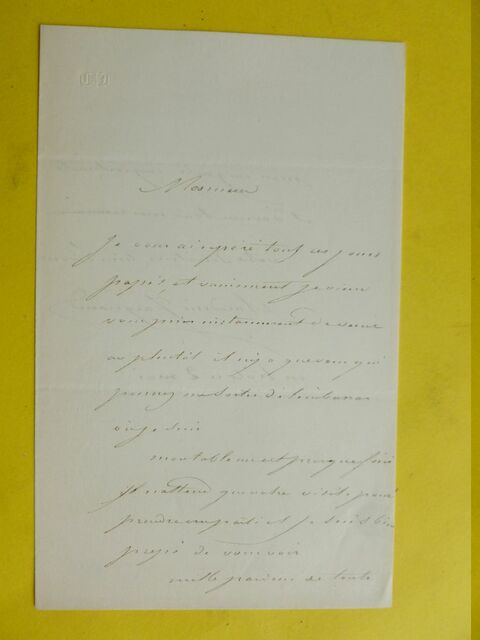 Monsieur
Je vous ai espéré tous ces jours
passés et vainement je viens
vous prier instamment de venir
au plutôt il n'y a que vous qui
pourrez me sortir de l'embarras
où je suis
mon tableau est presque fini
Je n'attends que votre visite pour
prendre un parti et je suis bien
pressé de vous voir
mille pardons de toute